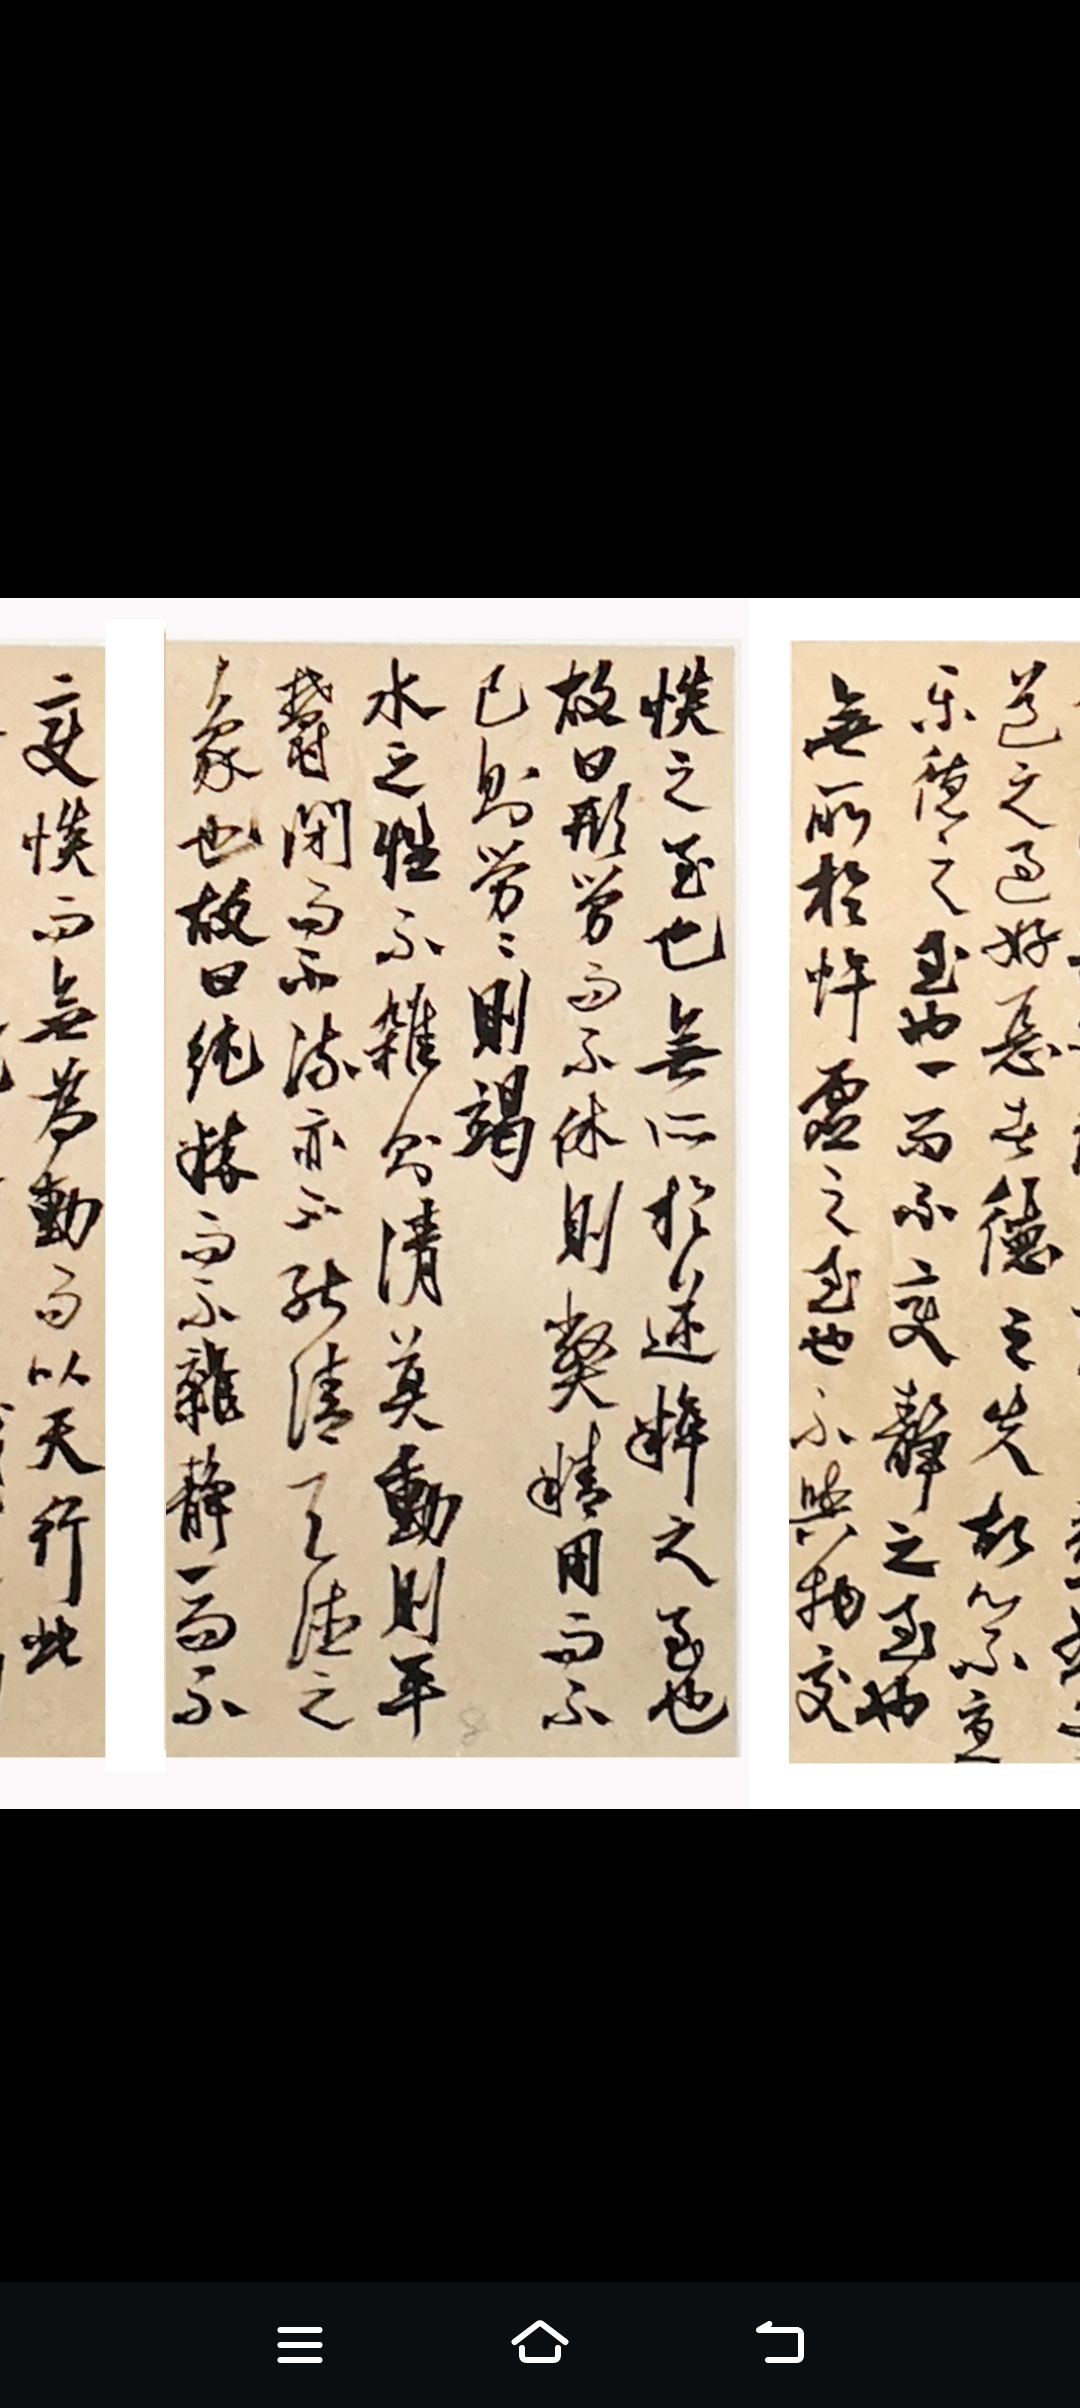 道之過好惡者德之失故心不憂
樂德之至也一而不變靜之至也
無所於忤虛之至也不與物交
惔之至也無所於逆粹之至也
故曰形勞而不休則弊精用而不
已則勞〻則竭
水之性不雜則清莫動則平
鬱閉而不流亦不能清天德之
象也故曰純粹而不雜靜一而不
變惔而無為動而以天行此